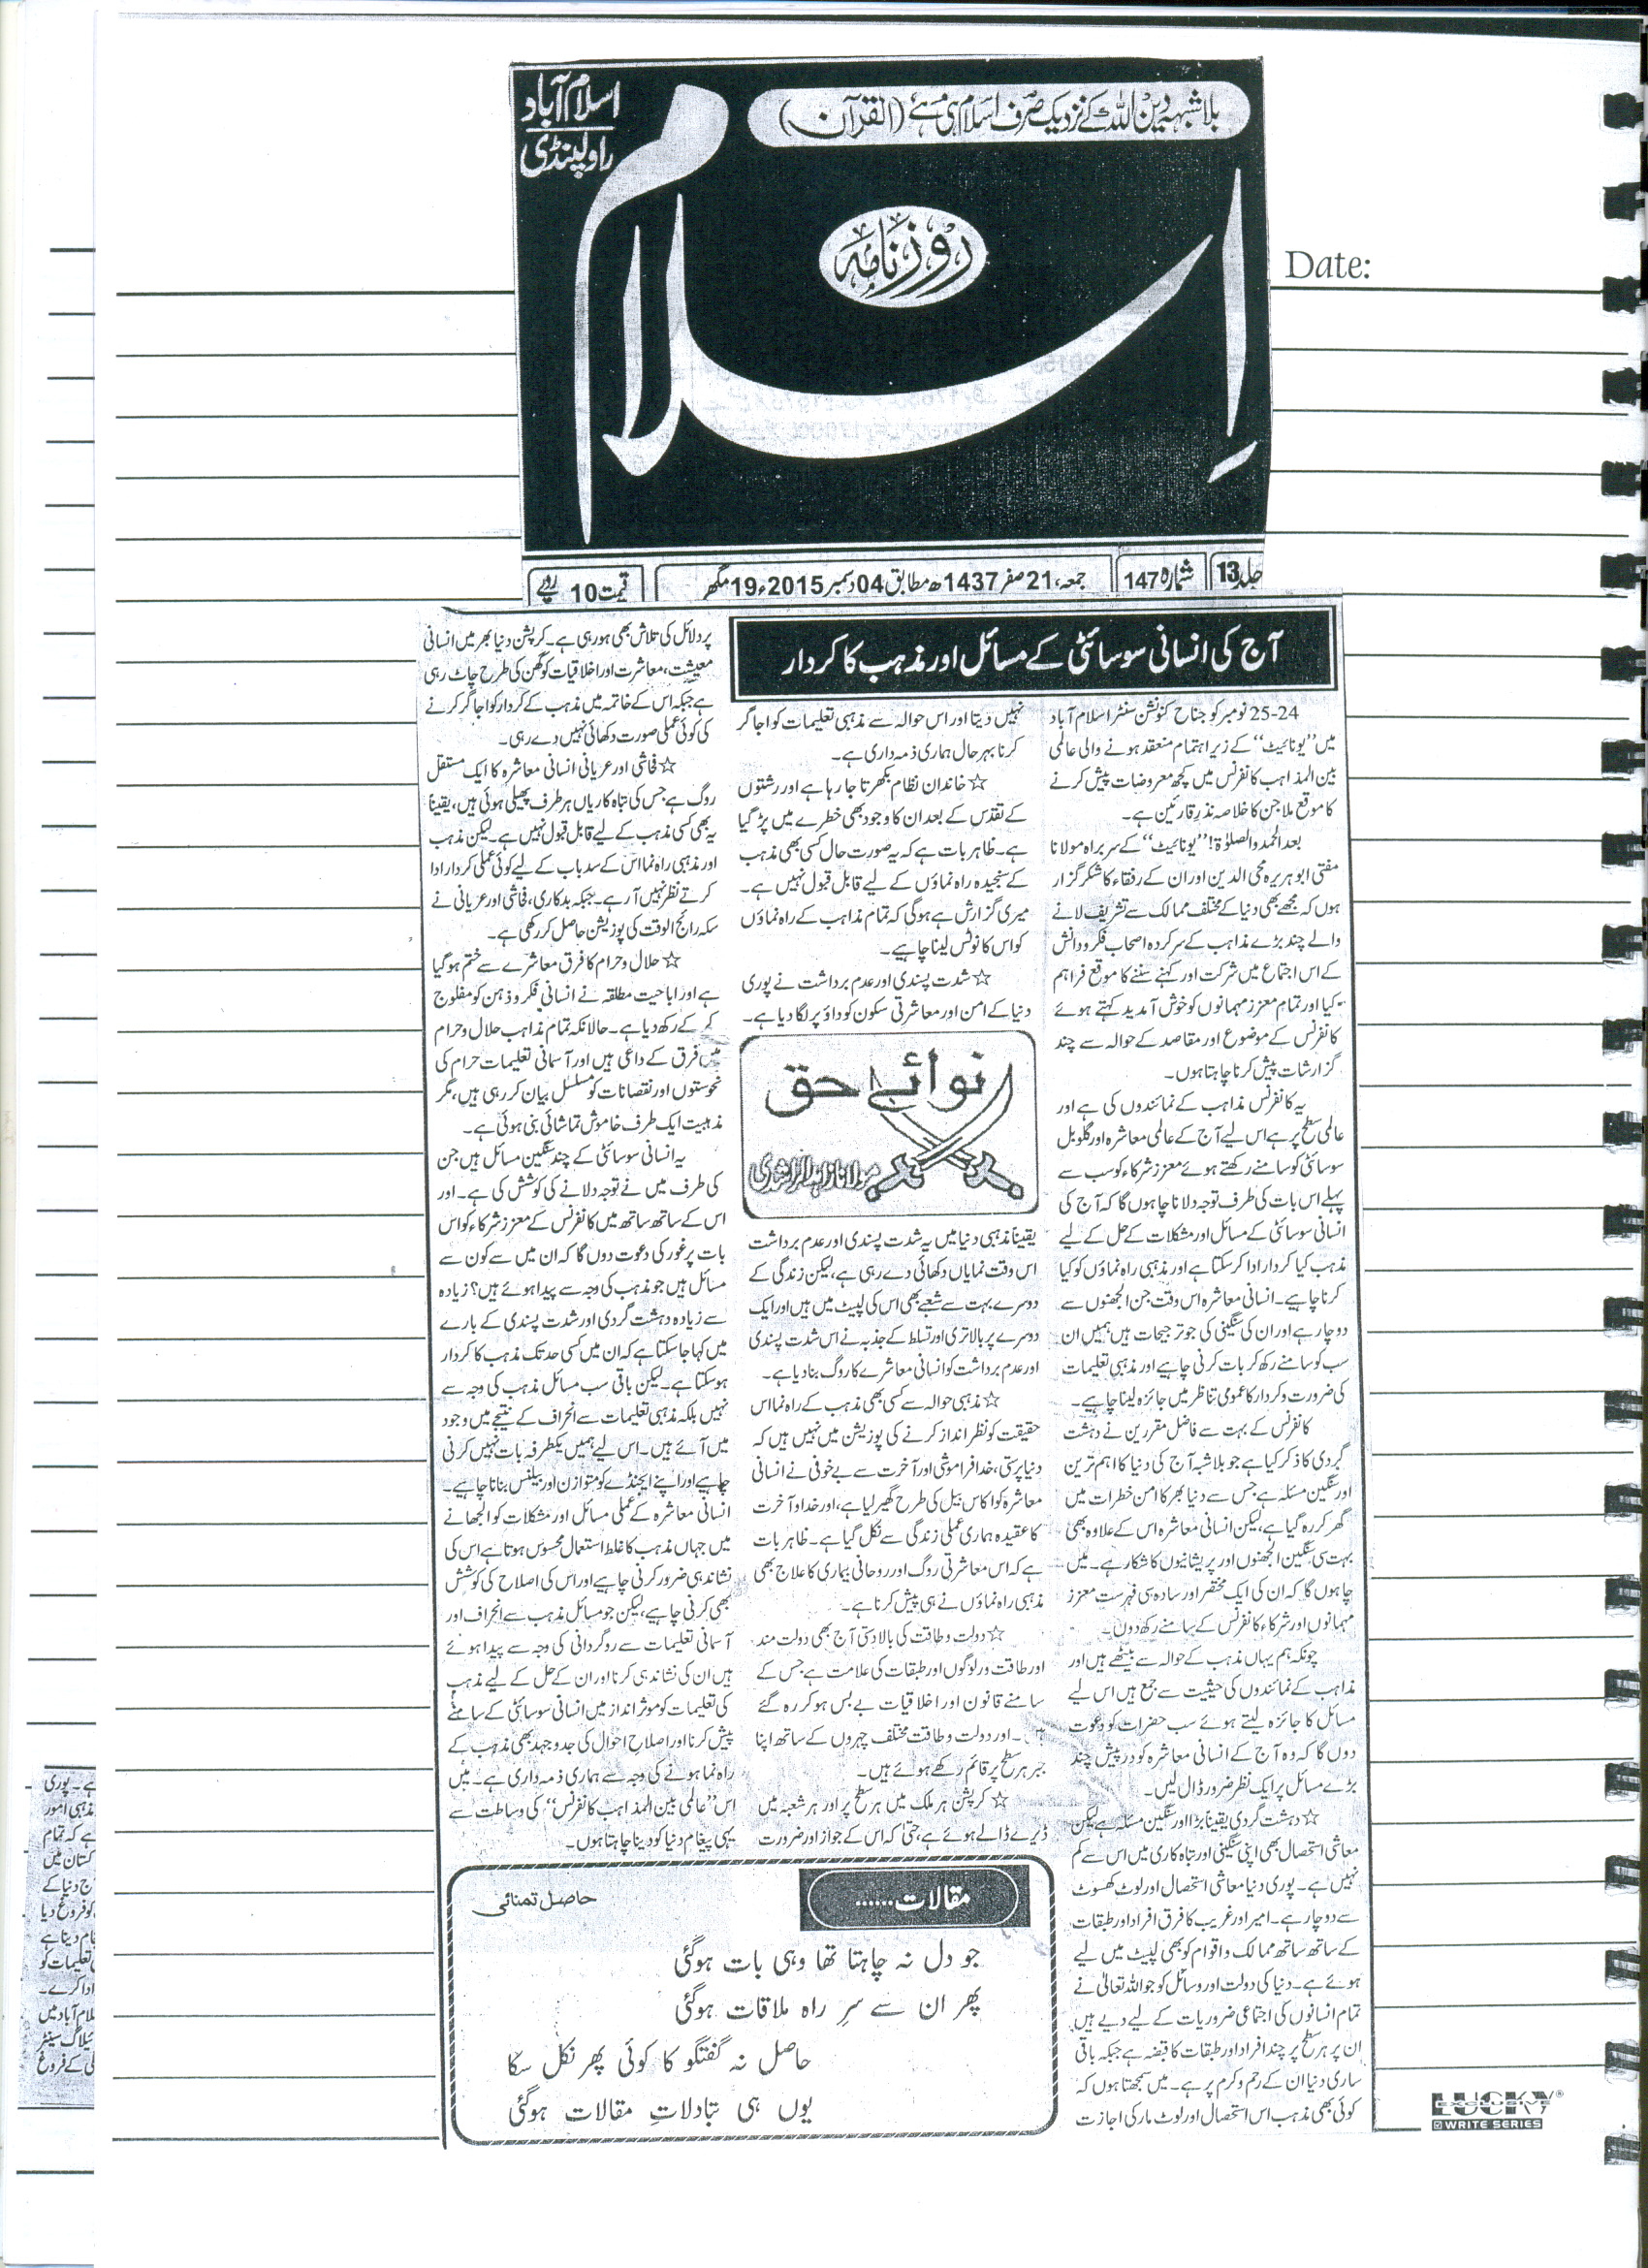 بلاشبہ دین اللہ کے نزدیک صرف اسلام ہی ہے (القرآن)
اسلام آباد
راولپنڈی
روزنامہ
اسلام
Date:
جلد 13
شمارہ 147
جمعہ، 21 صفر 1437ھ مطابق 04 دسمبر 2015ء 19 مگھر
قیمت 10 روپے
آج کی انسانی سوسائٹی کے مسائل اور مذہب کا کردار
24-25 نومبر کو جناح کنونشن سنٹر اسلام آباد
میں ’’یونائیٹ‘‘ کے زیر اہتمام منعقد ہونے والی عالمی
بین المذاہب کانفرنس میں کچھ معروضات پیش کرنے
کا موقع ملا جن کا خلاصہ نذر قارئین ہے۔
بعد الحمد والصلوٰۃ! ’’یونائیٹ‘‘ کے سربراہ مولانا
مفتی ابوہریرہ محی الدین اور ان کے رفقاء کا شکر گزار
ہوں کہ مجھے بھی دنیا کے مختلف ممالک سے تشریف لانے
والے چند بڑے مذاہب کے سرکردہ اصحاب فکر و دانش
کے اس اجتماع میں شرکت اور کہنے سننے کا موقع فراہم
کیا اور تمام معزز مہمانوں کو خوش آمدید کہتے ہوئے
کانفرنس کے موضوع اور مقاصد کے حوالہ سے چند
گزارشات پیش کرنا چاہتا ہوں۔
یہ کانفرنس مذاہب کے نمائندوں کی ہے اور
عالمی سطح پر ہے اس لیے آج کے عالمی معاشرہ اور گلوبل
سوسائٹی کو سامنے رکھتے ہوئے معزز شرکاء کو سب سے
پہلے اس بات کی طرف توجہ دلانا چاہوں گا کہ آج کی
انسانی سوسائٹی کے مسائل اور مشکلات کے حل کے لیے
مذہب کیا کردار ادا کر سکتا ہے اور مذہبی راہ نماؤں کو کیا
کرنا چاہیے۔ انسانی معاشرہ اس وقت جن الجھنوں سے
دوچار ہے اور ان کی سنگینی کی جو ترجیحات ہیں ہمیں ان
سب کو سامنے رکھ کر بات کرنی چاہیے اور مذہبی تعلیمات
کی ضرورت و کردار کا عمومی تناظر میں جائزہ لینا چاہیے۔
کانفرنس کے بہت سے فاضل مقررین نے دہشت
گردی کا ذکر کیا ہے جو بلاشبہ آج کی دنیا کا اہم ترین
اور سنگین مسئلہ ہے جس سے دنیا بھر کا امن خطرات میں
گھر کر رہ گیا ہے، لیکن انسانی معاشرہ اس کے علاوہ بھی
بہت سی سنگین الجھنوں اور پریشانیوں کا شکار ہے۔ میں
چاہوں گا کہ ان کی ایک مختصر اور سادہ سی فہرست معزز
مہمانوں اور شرکاء کانفرنس کے سامنے رکھ دوں۔
چونکہ ہم یہاں مذہب کے حوالہ سے بیٹھے ہیں اور
مذاہب کے نمائندوں کی حیثیت سے جمع ہیں اس لیے
مسائل کا جائزہ لیتے ہوئے سب حضرات کو دعوت
دوں گا کہ وہ آج کے انسانی معاشرہ کو درپیش چند
بڑے مسائل پر ایک نظر ضرور ڈال لیں۔
☆ دہشت گردی یقیناً بڑا اور سنگین مسئلہ ہے لیکن
معاشی استحصال بھی اپنی سنگینی اور تباہ کاری میں اس سے کم
نہیں ہے۔ پوری دنیا معاشی استحصال اور لوٹ کھسوٹ
سے دوچار ہے۔ امیر اور غریب کا فرق افراد اور طبقات
کے ساتھ ساتھ ممالک و اقوام کو بھی لپیٹ میں لیے
ہوئے ہے۔ دنیا کی دولت اور وسائل کو جو اللہ تعالیٰ نے
تمام انسانوں کی اجتماعی ضروریات کے لیے دیے ہیں
ان پر ہر سطح پر چند افراد اور طبقات کا قبضہ ہے جبکہ باقی
ساری دنیا ان کے رحم و کرم پر ہے۔ میں سمجھتا ہوں کہ
کوئی بھی مذہب اس استحصال اور لوٹ مار کی اجازت
نہیں دیتا اور اس حوالہ سے مذہبی تعلیمات کو اجاگر
کرنا بہرحال ہماری ذمہ داری ہے۔
☆ خاندان نظام بکھرتا جا رہا ہے اور رشتوں
کے تقدس کے بعد ان کا وجود بھی خطرے میں پڑ گیا
ہے۔ ظاہر بات ہے کہ یہ صورت حال کسی بھی مذہب
کے سنجیدہ راہ نماؤں کے لیے قابل قبول نہیں ہے۔
میری گزارش ہے ہوگی کہ تمام مذاہب کے راہ نماؤں
کو اس کا نوٹس لینا چاہیے۔
☆ شدت پسندی اور عدم برداشت نے پوری
دنیا کے امن اور معاشرتی سکون کو داؤ پر لگا دیا ہے۔
نوائے حق
مولانا زاہد الراشدی
یقیناً مذہبی دنیا میں یہ شدت پسندی اور عدم برداشت
اس وقت نمایاں دکھائی دے رہی ہے، لیکن زندگی کے
دوسرے بہت سے شعبے بھی اس کی لپیٹ میں ہیں اور ایک
دوسرے پر بالاتری اور تسلط کے جذبہ نے اس شدت پسندی
اور عدم برداشت کو انسانی معاشرے کا روگ بنا دیا ہے۔
☆ مذہبی حوالہ سے کسی بھی مذہب کے راہ نما اس
حقیقت کو نظر انداز کرنے کی پوزیشن میں نہیں ہیں کہ
دنیا پرستی، خدا فراموشی اور آخرت سے بے خوفی نے انسانی
معاشرہ کو اکاس بیل کی طرح گھیر لیا ہے، اور خدا و آخرت
کا عقیدہ ہماری عملی زندگی سے نکل گیا ہے۔ ظاہر بات
ہے کہ اس معاشرتی روگ اور روحانی بیماری کا علاج بھی
مذہبی راہ نماؤں نے ہی پیش کرنا ہے۔
☆ دولت و طاقت کی بالادستی آج بھی دولت مند
اور طاقت ور لوگوں اور طبقات کی علامت ہے جس کے
سامنے قانون اور اخلاقیات بے بس ہو کر رہ گئے
ہیں۔ اور دولت و طاقت مختلف چہروں کے ساتھ اپنا
جبر ہر سطح پر قائم رکھے ہوئے ہیں۔
☆ کرپشن ہر ملک میں ہر سطح پر اور ہر شعبہ میں
ڈیرے ڈالے ہوئے ہے، حتیٰ کہ اس کے جواز اور ضرورت
پر دلائل کی تلاش بھی ہو رہی ہے۔ کرپشن دنیا بھر میں انسانی
معیشت، معاشرت اور اخلاقیات کو گھن کی طرح چاٹ رہی
ہے جبکہ اس کے خاتمہ میں مذہب کے کردار کو اجاگر کرنے
کی کوئی عملی صورت دکھائی نہیں دے رہی۔
☆ فحاشی اور عریانی انسانی معاشرہ کا ایک مستقل
روگ ہے جس کی تباہ کاریاں ہر طرف پھیلی ہوئی ہیں، یقیناً
یہ بھی کسی مذہب کے لیے قابل قبول نہیں ہے۔ لیکن مذہب
اور مذہبی راہ نما اس کے سدباب کے لیے کوئی عملی کردار ادا
کرتے نظر نہیں آ رہے۔ جبکہ بدکاری، فحاشی اور عریانی نے
سکہ رائج الوقت کی پوزیشن حاصل کر رکھی ہے۔
☆ حلال و حرام کا فرق معاشرے سے ختم ہو گیا
ہے اور اباحیت مطلقہ نے انسانی فکر و ذہن کو مفلوج
کر کے رکھ دیا ہے۔ حالانکہ تمام مذاہب حلال و حرام
میں فرق کے داعی ہیں اور آسمانی تعلیمات حرام کی
نحوستوں اور نقصانات کو مسلسل بیان کر رہی ہیں، مگر
مذہبیت ایک طرف خاموش تماشائی بنی ہوئی ہے۔
یہ انسانی سوسائٹی کے چند سنگین مسائل ہیں جن
کی طرف میں نے توجہ دلانے کی کوشش کی ہے۔ اور
اس کے ساتھ ساتھ میں کانفرنس کے معزز شرکاء کو اس
بات پر غور کی دعوت دوں گا کہ ان میں سے کون سے
مسائل ہیں جو مذہب کی وجہ سے پیدا ہوئے ہیں؟ زیادہ
سے زیادہ دہشت گردی اور شدت پسندی کے بارے
میں کہا جا سکتا ہے کہ ان میں کسی حد تک مذہب کا کردار
ہو سکتا ہے۔ لیکن باقی سب مسائل مذہب کی وجہ سے
نہیں بلکہ مذہبی تعلیمات سے انحراف کے نتیجے میں وجود
میں آئے ہیں۔ اس لیے ہمیں یکطرفہ بات نہیں کرنی
چاہیے اور اپنے ایجنڈے کو متوازن اور بیلنس بنانا چاہیے۔
انسانی معاشرہ کے عملی مسائل اور مشکلات کو الجھانے
میں جہاں مذہب کا غلط استعمال محسوس ہوتا ہے اس کی
نشاندہی ضرور کرنی چاہیے اور اس کی اصلاح کی کوشش
بھی کرنی چاہیے، لیکن جو مسائل مذہب سے انحراف اور
آسمانی تعلیمات سے روگردانی کی وجہ سے پیدا ہوئے
ہیں ان کی نشاندہی کرنا اور ان کے حل کے لیے مذہب
کی تعلیمات کو موثر انداز میں انسانی سوسائٹی کے سامنے
پیش کرنا اور اصلاح احوال کی جدوجہد بھی مذہب کے
راہ نما ہونے کی وجہ سے ہماری ذمہ داری ہے۔ میں
اس ’’عالمی بین المذاہب کانفرنس‘‘ کی وساطت سے
یہی پیغام دنیا کو دینا چاہتا ہوں۔
مقالات.......
حاصل تمنائی
جو دل نہ چاہتا تھا وہی بات ہوگئی
پھر ان سے سرِ راہ ملاقات ہوگئی
حاصل نہ گفتگو کا کوئی پھر نکل سکا
یوں ہی تبادلاتِ مقالات ہوگئی
ہے۔ پوری
مذہبی امور
ہے کہ تمام
کستان میں
ج دنیا کے
کو فروغ دیا
ام دینا ہے
تعلیمات کو
ادا کرے۔
لام آباد میں
ئیلاگ سینٹر
لی کے فروغ
LUCKY
EXCLUSIVE
WRITE SERIES